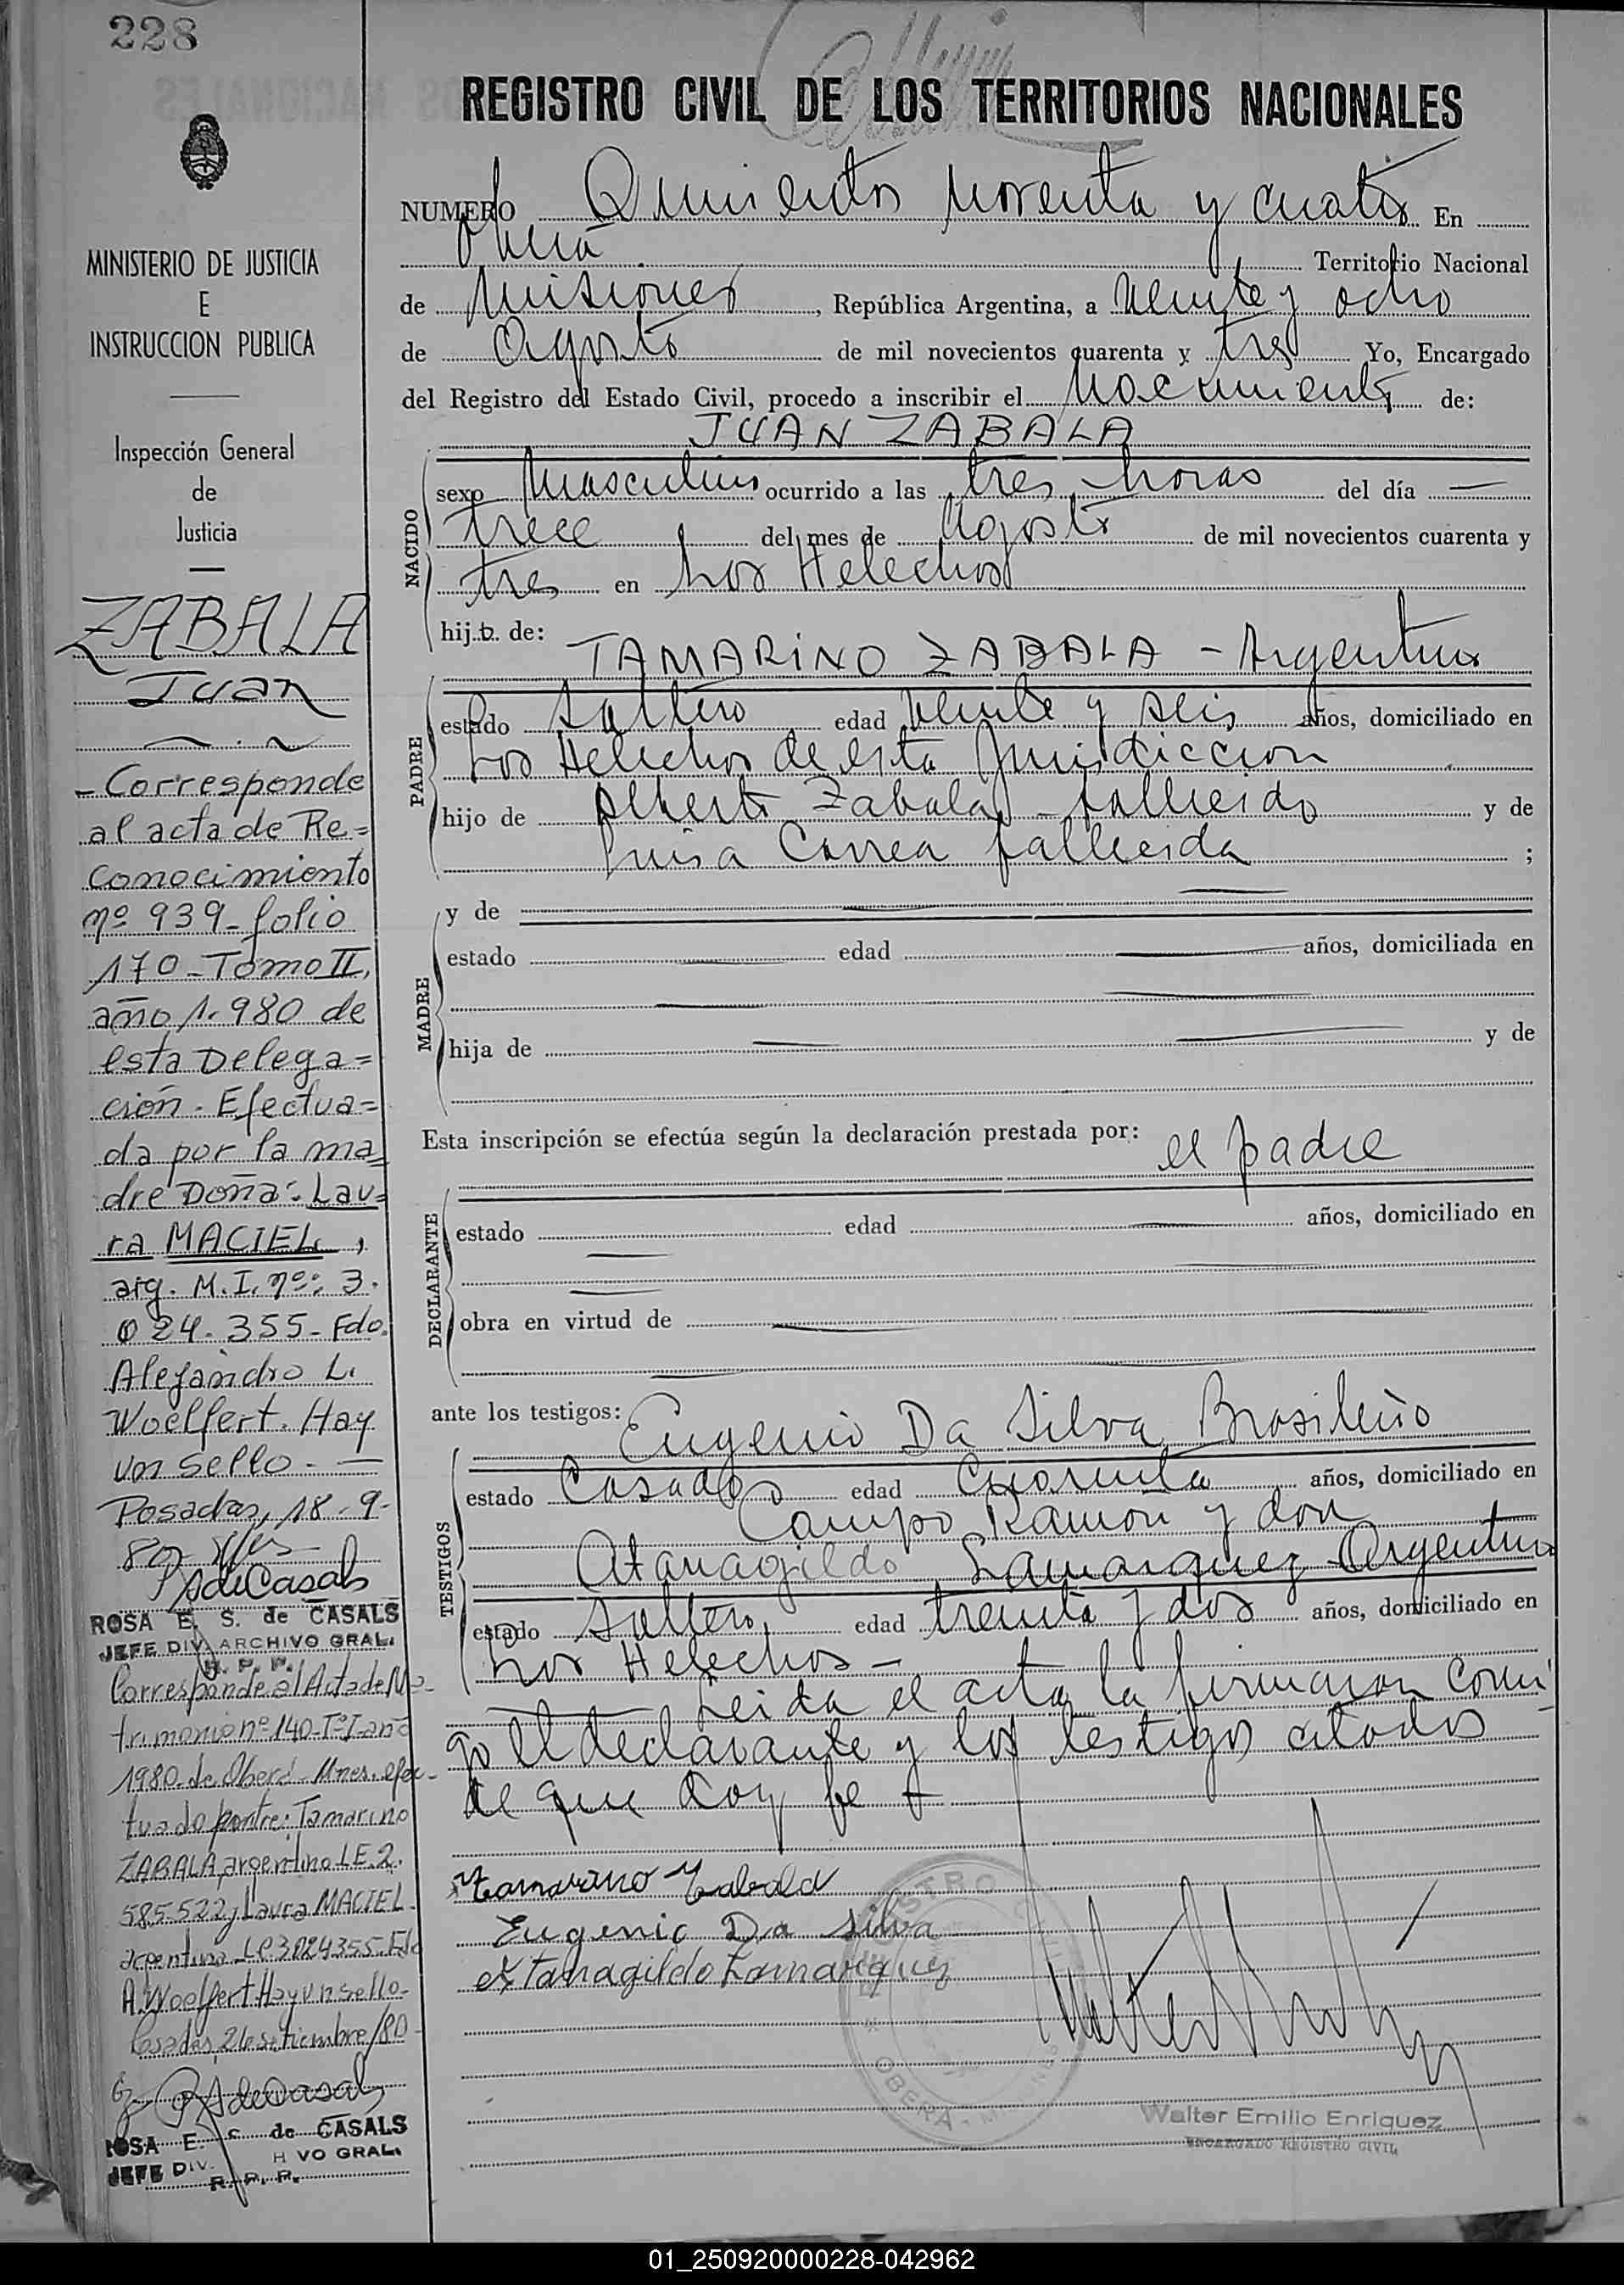 228
REGISTRO CIVIL DE LOS TERRITORIOS NACIONALES
MINISTERIO DE JUSTICIA
E
INSTRUCCION PUBLICA
Inspección General
de
Justicia
ZABALA
Juan
- Corresponde
al acta de Re=
conocimiento
nº 939 - folio
170 - Tomo II,
año 1.980 de
esta Delega=
ción. Efectua=
da por la ma=
dre Doña: Lau=
ra MACIEL,
arg. M.I. nº: 3.
024.355 - Fdo.
Alejandro L.
Woelfert. Hay
un sello. -
Posadas, 18-9-
80
ROSA E. S. de CASALS
JEFE DIV. ARCHIVO GRAL.
R. P. P.
Corresponde al Acta de Ma-
trimonio nº 140-Tº I-año
1980-de Oberá-Mnes. efec-
tuado por/tre: Tamarino
ZABALA, argentino L.E. 2.
585.522 y Laura MACIEL-
argentina - LC 3024355. Fdo
A. Woelfert. Hay un sello-
Posadas, 26 setiembre/80
ROSA E. S. de CASALS
JEFE DIV. H VO GRAL.
R. P. P.
NUMERO Quinientos noventa y cuatro En
Oberá Territorio Nacional
de Misiones, República Argentina, a veinte y ocho
de Agosto de mil novecientos cuarenta y tres Yo, Encargado
del Registro del Estado Civil, procedo a inscribir el Nacimiento de:
JUAN ZABALA
NACIDO
sexo Masculino ocurrido a las tres horas del día —
trece del mes de Agosto de mil novecientos cuarenta y
tres en Los Helechos
hijo de:
TAMARINO ZABALA - Argentino
PADRE
estado soltero edad veinte y seis años, domiciliado en
Los Helechos de esta Jurisdiccion
hijo de Alberto Zabala - fallecido y de
Luisa Correa fallecida ;
MADRE
y de
estado edad años, domiciliada en
hija de y de
Esta inscripción se efectúa según la declaración prestada por: el padre
DECLARANTE
estado edad años, domiciliado en
obra en virtud de
ante los testigos: Eugenio Da Silva Brasileño
TESTIGOS
estado Casado edad Cuarenta años, domiciliado en
Campo Ramon y don
Atanagildo Lamarquez Argentino
estado soltero edad treinta y dos años, domiciliado en
Los Helechos -
Leida el acta la firmaron conmi
go el declarante y los testigos citados
de que doy fe
Tamarino Zabala
Eugenio Da Silva
Atanagildo Lamarquez
REGISTRO
OBERA - MISIONES
Walter Emilio Enriquez
ENCARGADO REGISTRO CIVIL
01_250920000228-042962